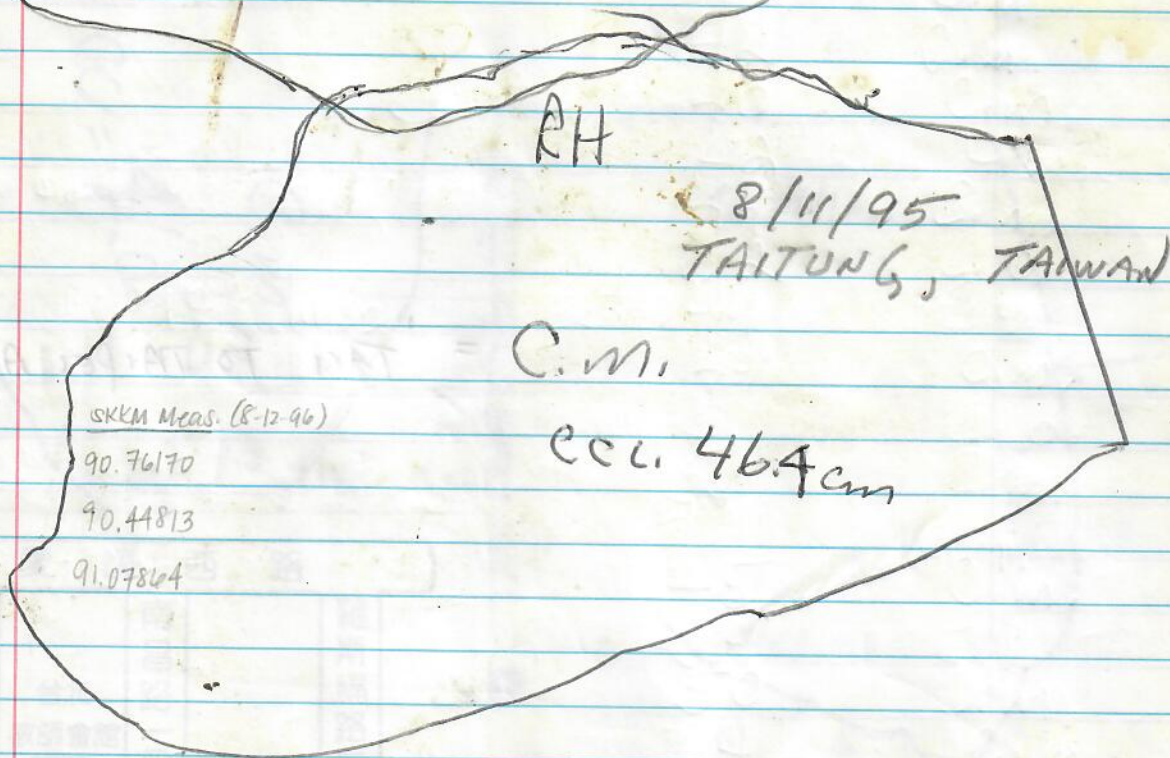 RH
8/11/95
TAITUNG, TAIWAN
C.m.
CCL. 46.4cm
SKKM Meas. (8-12-96)
90.76170
90.44813
91.07864